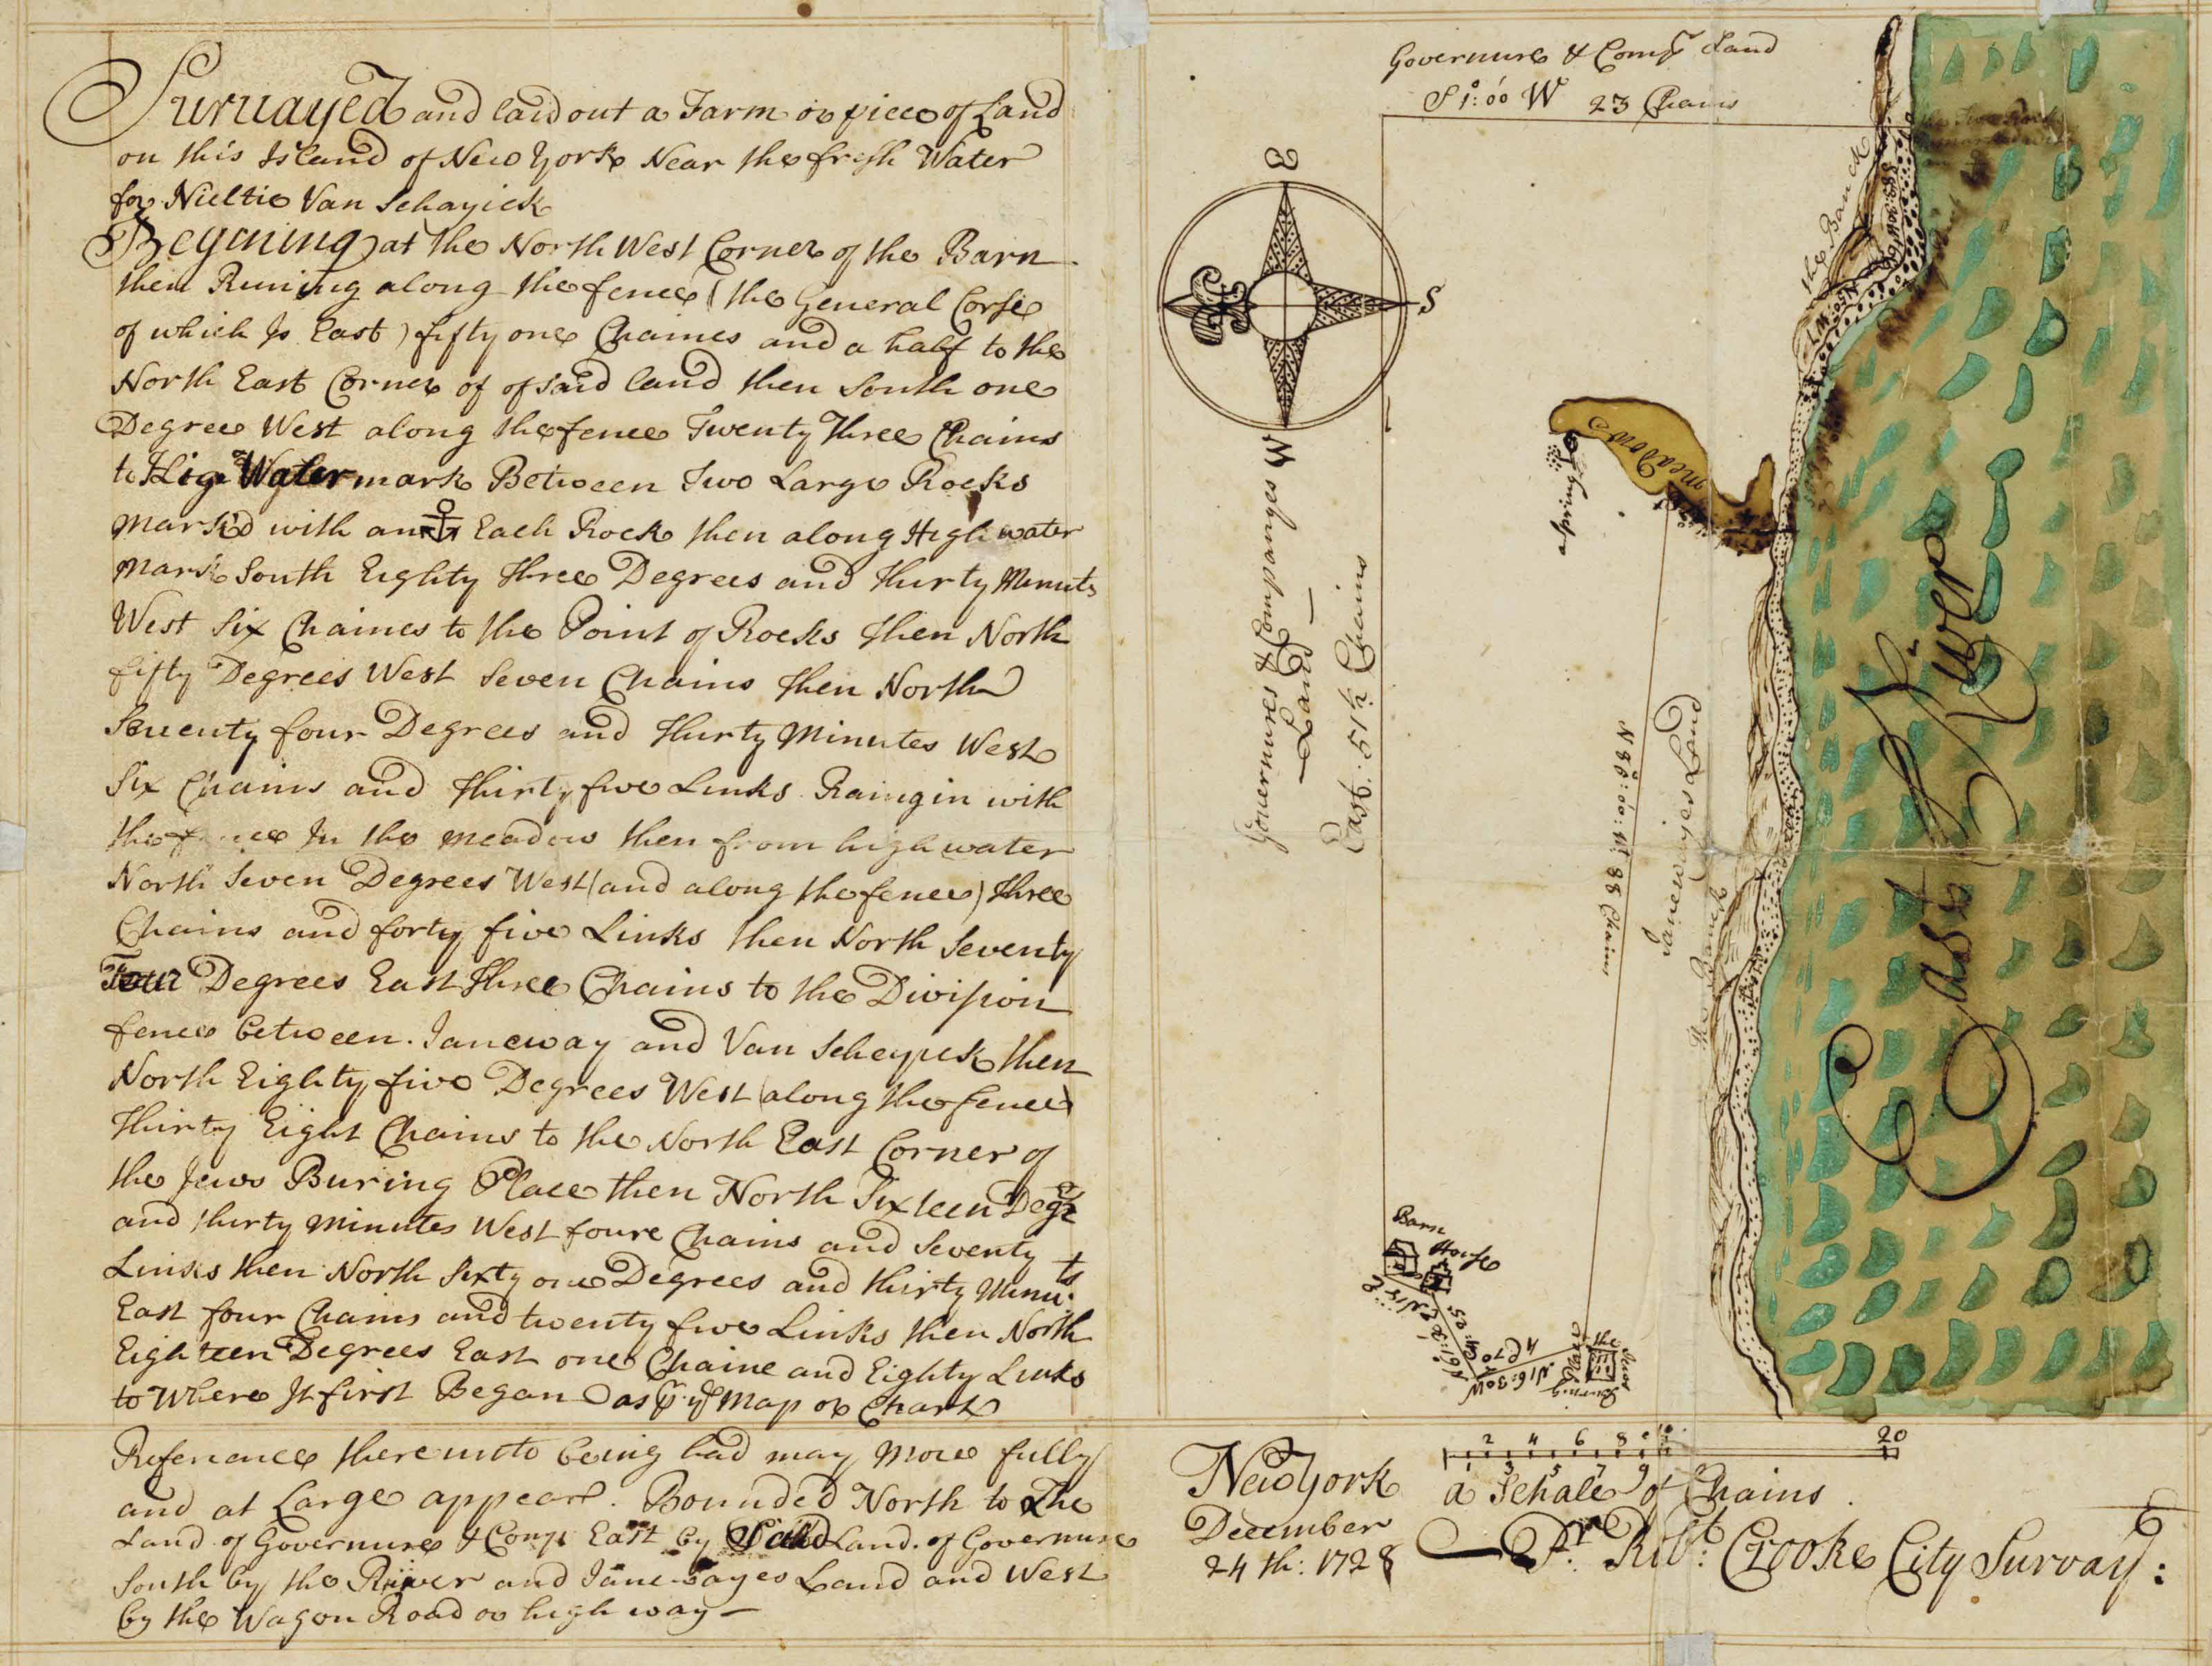 Survayed and laid out a Farm or piece of Land
on this Island of New York Near the fresh Water
for Nieltie Van Schayick
Begining at the North West Corner of the Barn
then Runing along the fence (the General Corse
of which Is East) fifty one Chaines and a half to the
North East Corner of of said land then South one
Degree West along the fence Twenty Three Chains
to High Water mark Between Two Large Rocks
Mark'd with an ⚓ Each Rock then along High water
Mark South Eighty Three Degrees and Thirty Minuts
West Six Chaines to the Point of Rocks then North
fifty Degrees West Seven Chains then North
Seuenty four Degrees and Thurty Minutes West
Six Chains and Thirty five Links Raingin with
the fence In the meadow then from high water
North Seven Degrees West (and along the fence) three
Chains and forty five Links then North Seventy
Four Degrees East Three Chains to the Division
fence between Janeway and Van Scheyick then
North Eighty five Degrees West (along the fence)
Thirty Eight Chains to the North East Corner of
the Jews Buring Place then North Sixteen Degrs
and thirty Minutes West foure Chains and Seventy
Links then North Sixty one Degrees and thirty Minuts
East four Chains and twenty five Links then North
Eighteen Degrees East one Chaine and Eighty Links
to Where It first Began as pr ye Map or Chart
Reference thereunto being had may More fully
and at Large appear. Bounded North to The
Land of Governure & Compy East by Said Land of Governure
South by the River and Janewayes Land and West
by the Wagon Road or high way
Governure & Compy Land
S 1°:00' W 23 Chains
E
S
W
Gouernures & Companyes
Land
East. 51½ Chains
the Banck
S 83:30 W 6
N 50: W 7
Meadow
a Spring
East River
Janewayes Land
N 85°:00: Wt 38 Chains
The Banck
Barn
House
N 61:30 E
4 Ch: 25
N 16:30 W
4 C 70
The Jews Buring Place
1 2 3 4 5 6 7 8 9 10 20
a Schale of Chains
New York
December
24th: 1728
Pr. Robt: Crooke City Survay: